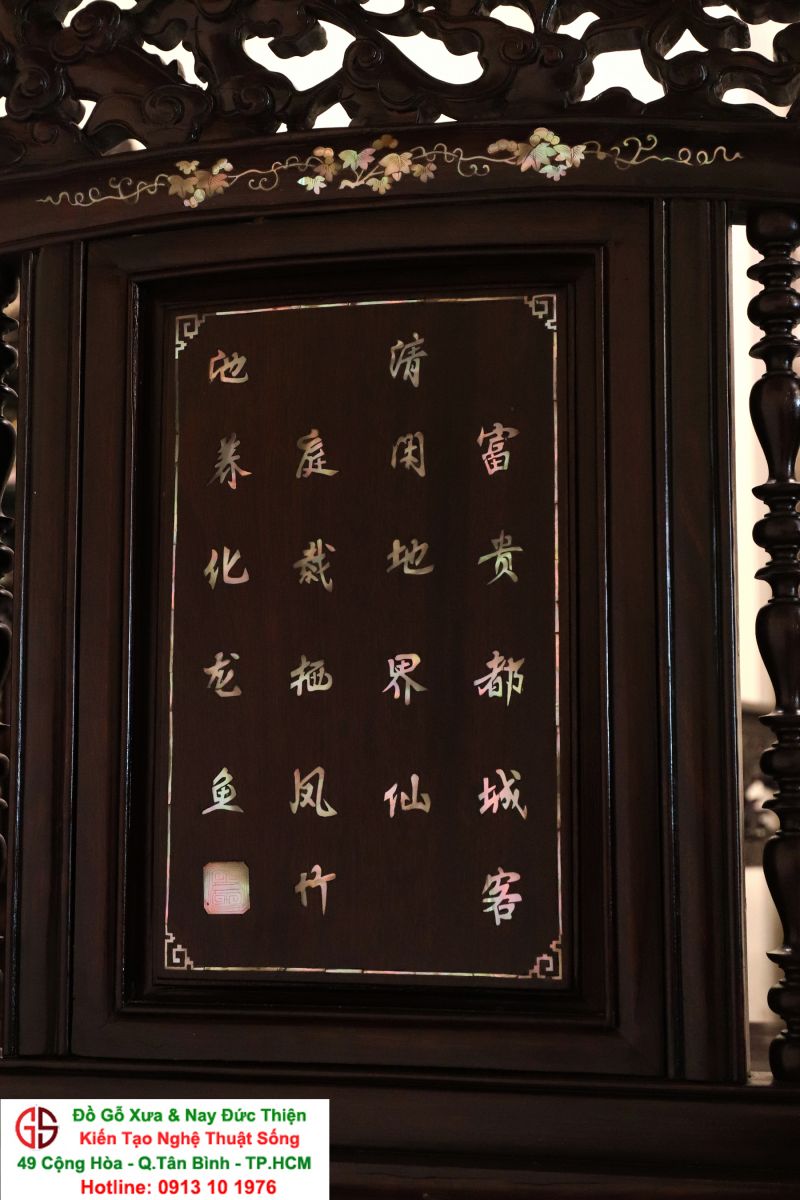 富贵都城客
清闲地界仙
庭栽栖凤竹
池养化龙鱼
GS
Đồ Gỗ Xưa & Nay Đức Thiện
Kiến Tạo Nghệ Thuật Sống
49 Cộng Hòa - Q.Tân Bình - TP.HCM
Hotline: 0913 10 1976